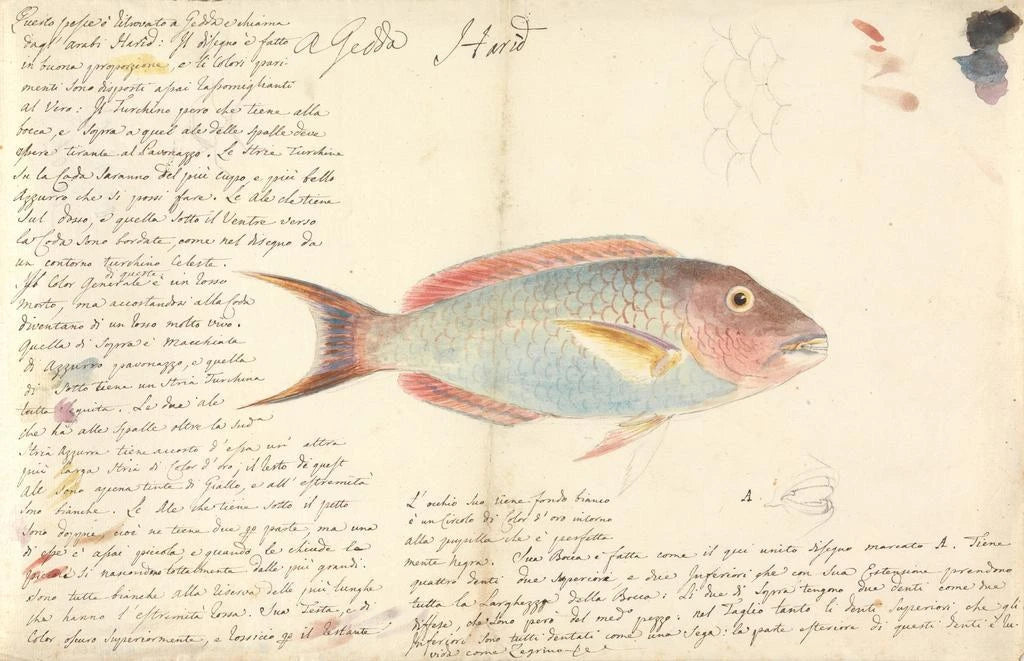 Questo pesce è ritrovato a Gedda e chiama
dagl' arabi Harid: Il disegno è fatto
in buona proporzione, e li Colori pari
menti sono disposte assai rassomiglianti
al Vero: Il Turchino pero che tiene alla
bocca, e sopra a quel ale delle spalle deve
essere tirante al Pavonazzo. Le Strie Turchine
su la Coda saranno del più cupo, e più bello
Azzurro che si possi fare. Le ale che tiene
sul dosso, e quella sotto il Ventre verso
la Coda sono bordate, come nel disegno da
un contorno turchino Celeste.
Il Color Generale di queste è un Rosso
morto, ma accostandosi alla Coda
diventano di un Rosso molto vivo.
Quella di Sopra è Macchiata
di Azzurro pavonazzo, e quella
di Sotto tiene un Stria Turchina
tutta seguita. Le due ale
che ha alle Spalle oltre la sud
Stria Azzurra tiene accosto d'essa un' altra
più larga Stria di Color d'oro; il resto di quest
Ale sono appena tinte di Giallo, e all' estremità
sono bianche. Le Ale che tiene sotto il petto
sono doppie cioè ne tiene due per parte, ma una
di esse è assai piccola e quando le chiude le
piccole si nascondono tottalmente dalle più grandi.
Sono tutte bianche alla riserva delle più lunghe
che hanno l'estremità Rossa. Sua Testa, è di
Color oscuro Superiormente, e Rossicio per il restante
A Gedda Harid
L'occhio suo tiene fondo bianco
è un Circolo di Color d'oro intorno
alla pupilla che è perfetta
mente Negra. Sua Bocca è fatta come il qui unito disegno marcato A. Tiene
quattro denti due Superiori, e due Inferiori che con Sua Estensione prendono
tutta la Larghezza della Bocca: Li due di Sopra tengono due denti come due
diffese, che sono però del med pezzo: nel Taglio tanto li denti Superiori che gli
Inferiori sono tutti dentati come una Sega: la parte esteriore di questi denti è Ru
vida come
A.